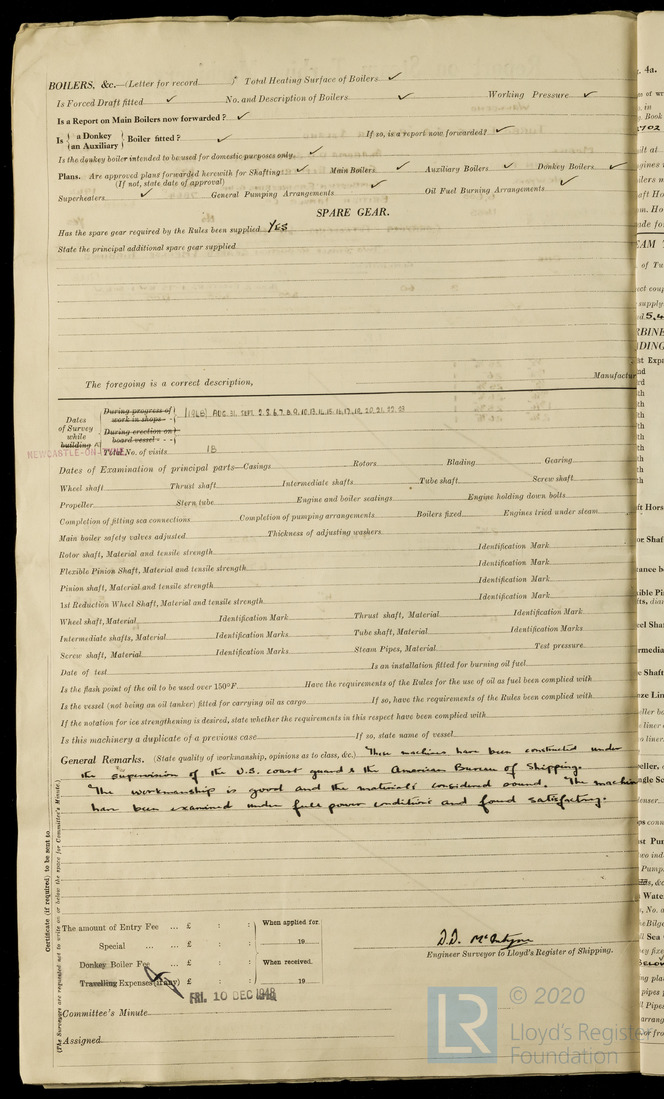 BOILERS, &c.—(Letter for record ) Total Heating Surface of Boilers ✓
Is Forced Draft fitted ✓ No. and Description of Boilers ✓ Working Pressure ✓
Is a Report on Main Boilers now forwarded? ✓
Is { a Donkey / an Auxiliary } Boiler fitted? ✓ If so, is a report now forwarded? ✓
Is the donkey boiler intended to be used for domestic purposes only ✓
Plans. Are approved plans forwarded herewith for Shafting ✓ Main Boilers ✓ Auxiliary Boilers ✓ Donkey Boilers ✓
(If not, state date of approval)
Superheaters ✓ General Pumping Arrangements ✓ Oil Fuel Burning Arrangements ✓
SPARE GEAR.
Has the spare gear required by the Rules been supplied YES
State the principal additional spare gear supplied
The foregoing is a correct description, Manufactur
Dates of Survey while building
During progress of work in shops - - (1948) AUG. 31. SEPT. 2. 3. 6. 7. 8. 9. 10. 13. 14. 15. 16. 17. 18. 20. 21. 22. 23
During erection on board vessel - - -
NEWCASTLE-ON-TYNE
Total No. of visits 18
Dates of Examination of principal parts—Casings Rotors Blading Gearing
Wheel shaft Thrust shaft Intermediate shafts Tube shaft Screw shaft
Propeller Stern tube Engine and boiler seatings Engine holding down bolts
Completion of fitting sea connections Completion of pumping arrangements Boilers fixed Engines tried under steam
Main boiler safety valves adjusted Thickness of adjusting washers
Rotor shaft, Material and tensile strength Identification Mark
Flexible Pinion Shaft, Material and tensile strength Identification Mark
Pinion shaft, Material and tensile strength Identification Mark
1st Reduction Wheel Shaft, Material and tensile strength Identification Mark
Wheel shaft, Material Identification Mark Thrust shaft, Material Identification Mark
Intermediate shafts, Material Identification Marks Tube shaft, Material Identification Marks
Screw shaft, Material Identification Marks Steam Pipes, Material Test pressure
Date of test Is an installation fitted for burning oil fuel
Is the flash point of the oil to be used over 150°F Have the requirements of the Rules for the use of oil as fuel been complied with
Is the vessel (not being an oil tanker) fitted for carrying oil as cargo If so, have the requirements of the Rules been complied with
If the notation for ice strengthening is desired, state whether the requirements in this respect have been complied with
Is this machinery a duplicate of a previous case If so, state name of vessel
General Remarks. (State quality of workmanship, opinions as to class, &c.) These machines have been constructed under
the supervision of the U.S. coast guard & the American Bureau of Shipping.
The workmanship is good and the materials considered sound. The machin
have been examined under full power conditions and found satisfactory.
Certificate (if required) to be sent to
(The Surveyors are requested not to write on or below the space for Committee's Minute.)
The amount of Entry Fee ... £ : : When applied for
Special ... ... £ : : 19
Donkey Boiler Fee ... £ : : When received.
Travelling Expenses (if any) £ : : 19
D.D. McIntyre
Engineer Surveyor to Lloyd's Register of Shipping.
FRI. 10 DEC 1948
Committee's Minute
Assigned
LR © 2020
Lloyd's Register
Foundation